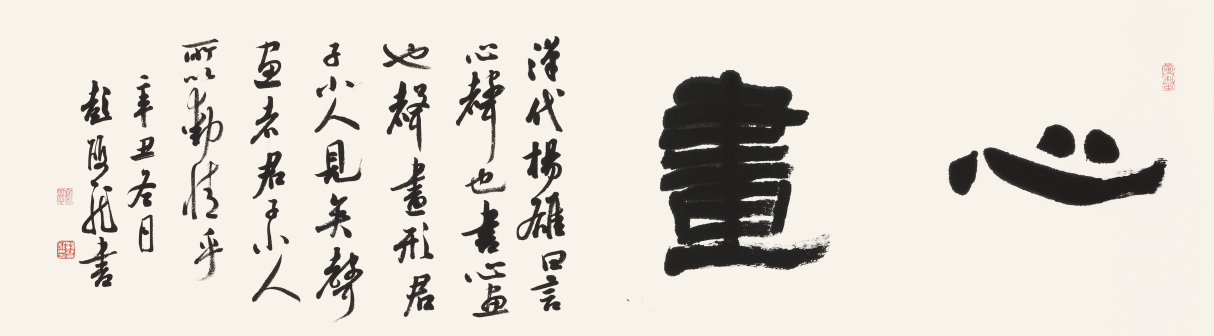 心畫
漢代揚雄曰言
心聲也書心畫
也聲畫形君
子小人見矣聲
畫者君子小人
所以動情乎
辛丑冬月
彭 飛書